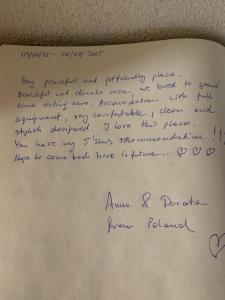 Very peacefull and petfriendly place.
Beautiful and climatic area, we loved to spend
time sitting here. Accomodation with full
equipment, very comfortable, clean and
stylish designed. I love this place.
You have my 5 stars recommendation !!
Hope to come back here in future... ♡ ♡ ♡
Anna & Dorota
from Poland